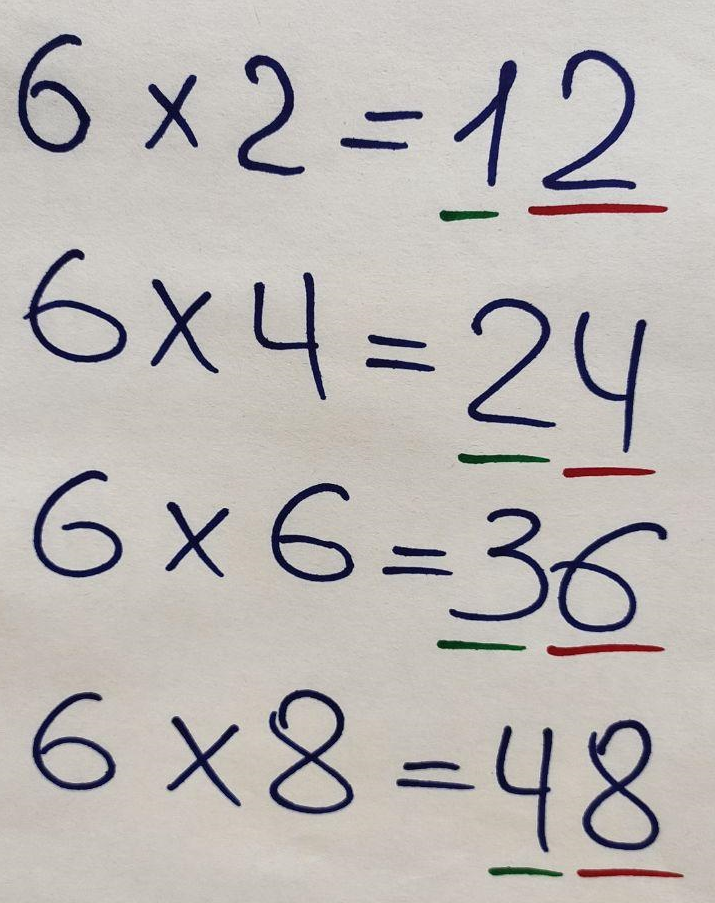 6 × 2 = 12
6 × 4 = 24
6 × 6 = 36
6 × 8 = 48